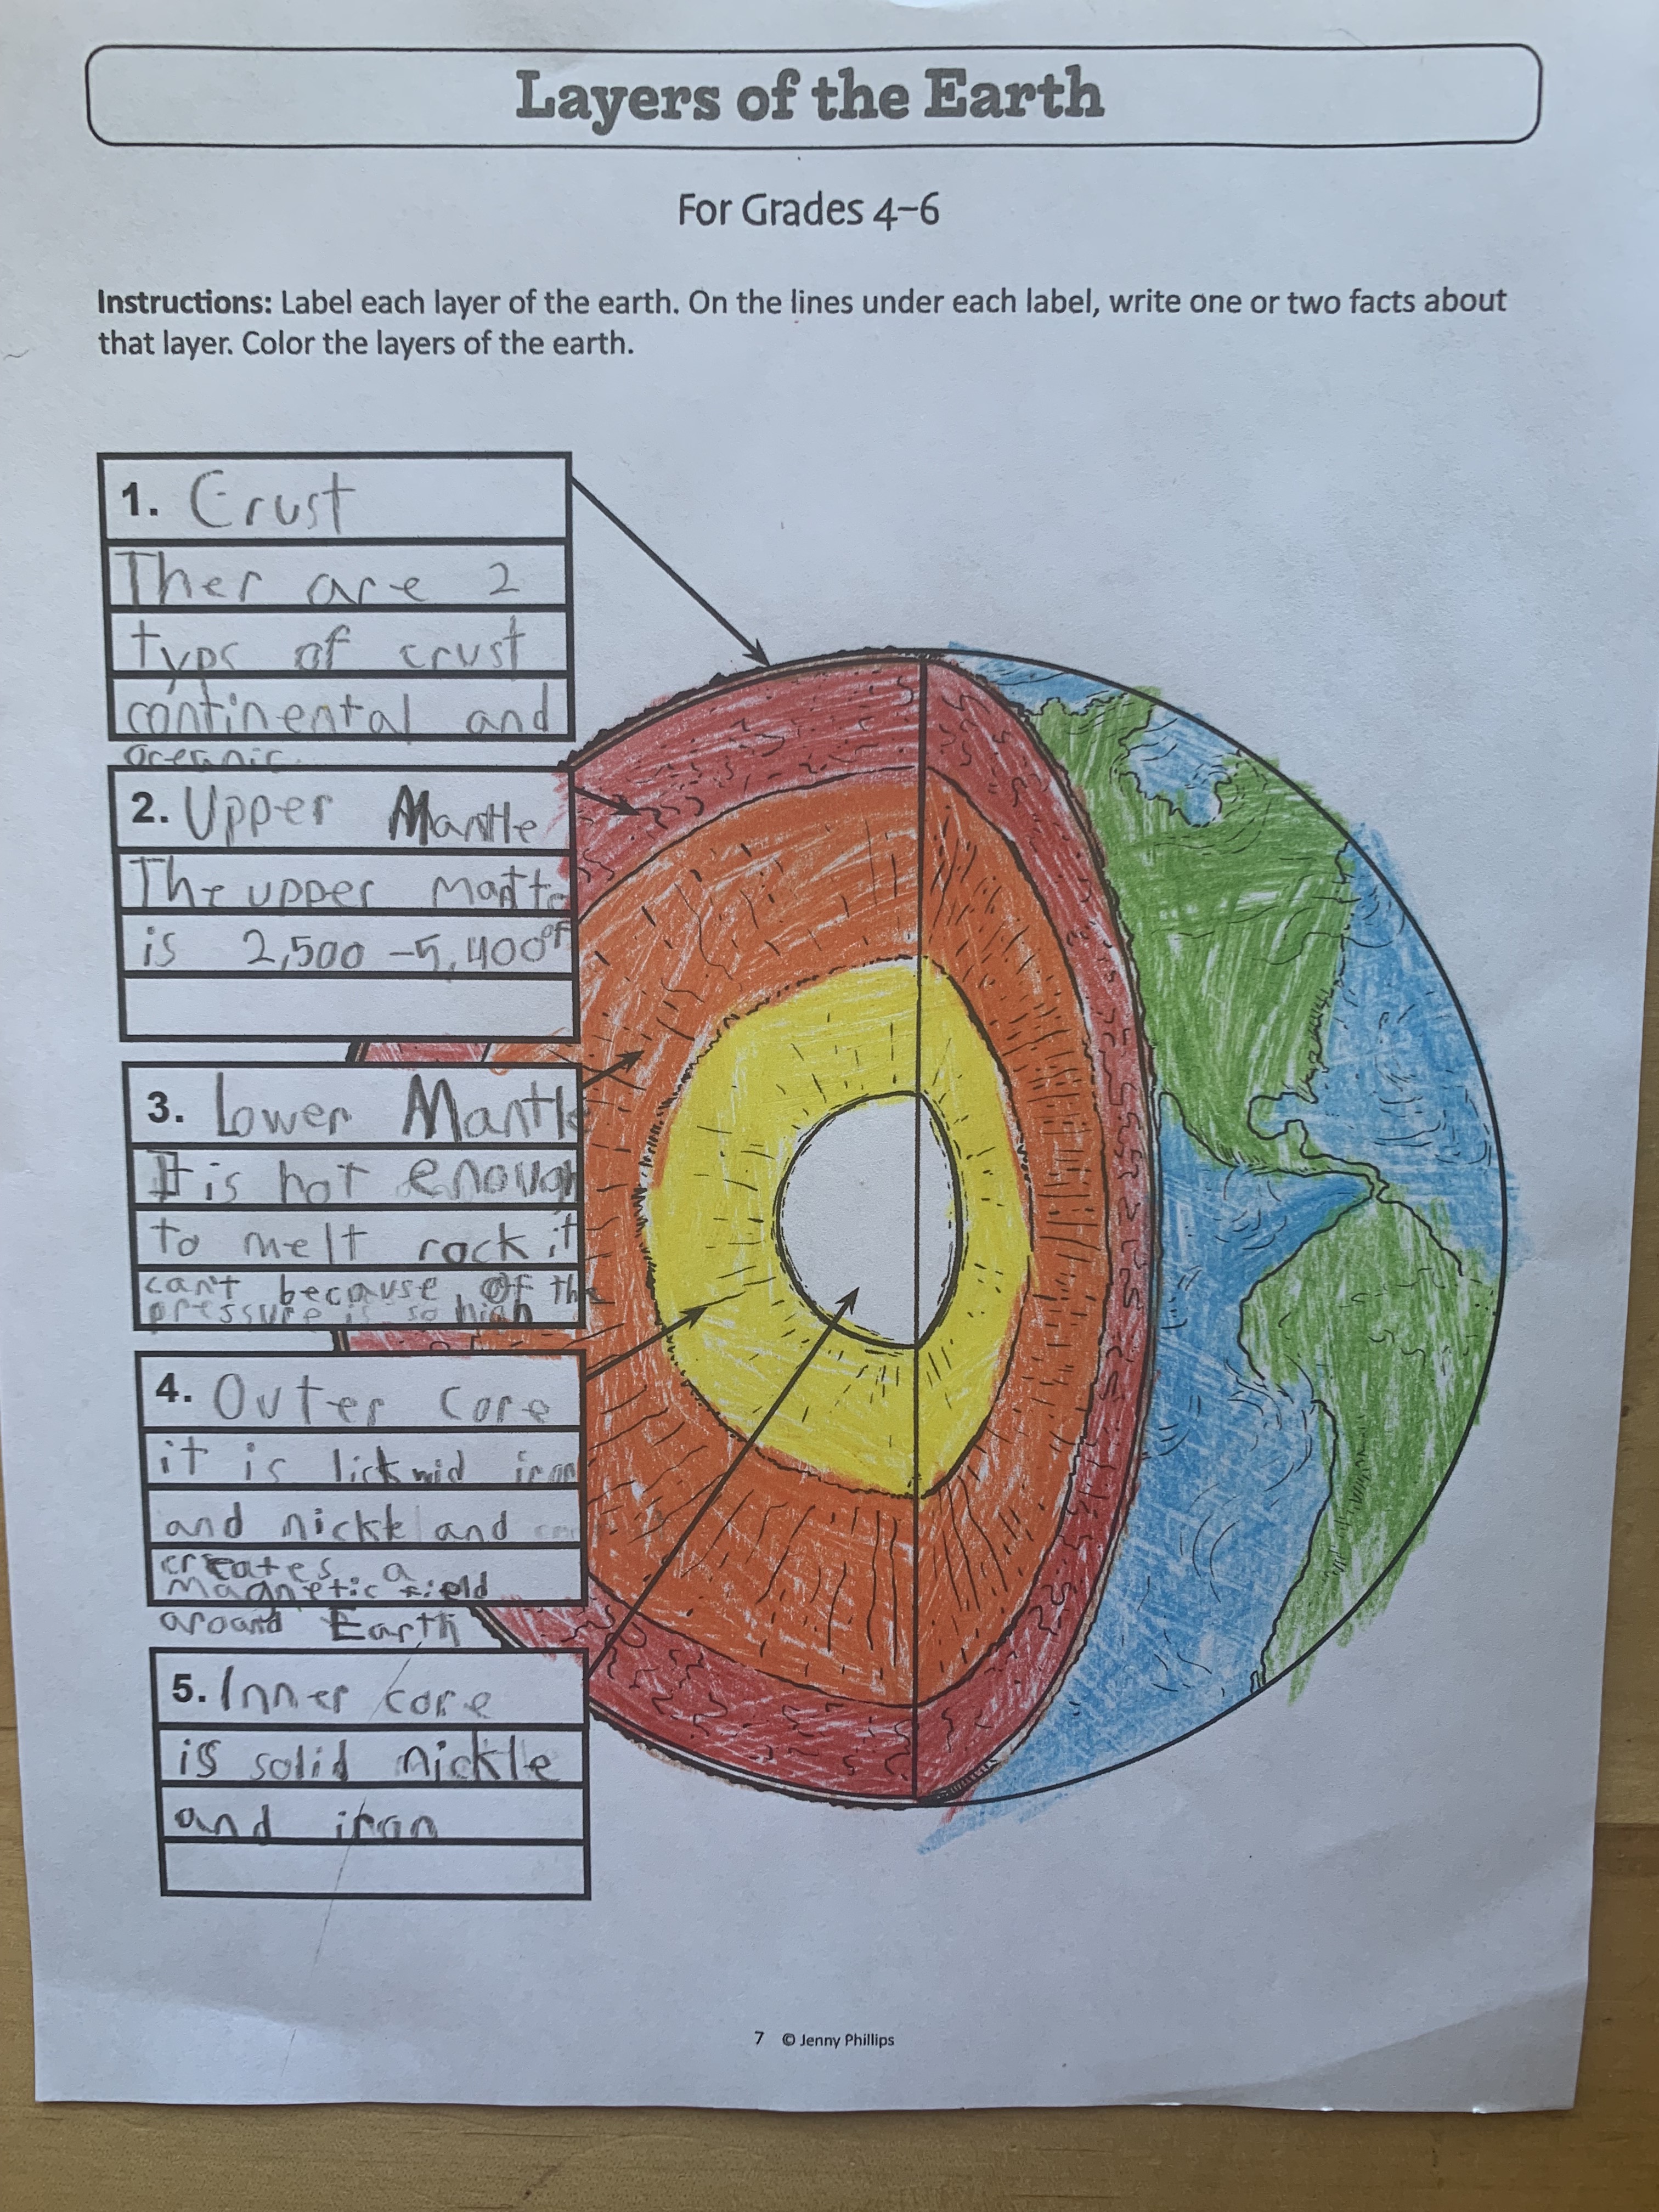 Layers of the Earth
For Grades 4–6
Instructions: Label each layer of the earth. On the lines under each label, write one or two facts about
that layer. Color the layers of the earth.
1. Crust
Ther are 2
typs of crust
continental and
oceanic
2. Upper Mantle
The upper
is 2,500 - 5,400°F
3. Lower Mantle
It is hot enough
to melt rock it
can't because of the
pressure is so high
4. Outer core
it is lickwid iron
and nickle and
creates a
magnetic field
around Earth
5. Inner core
is solid nickle
and iron
7 © Jenny Phillips